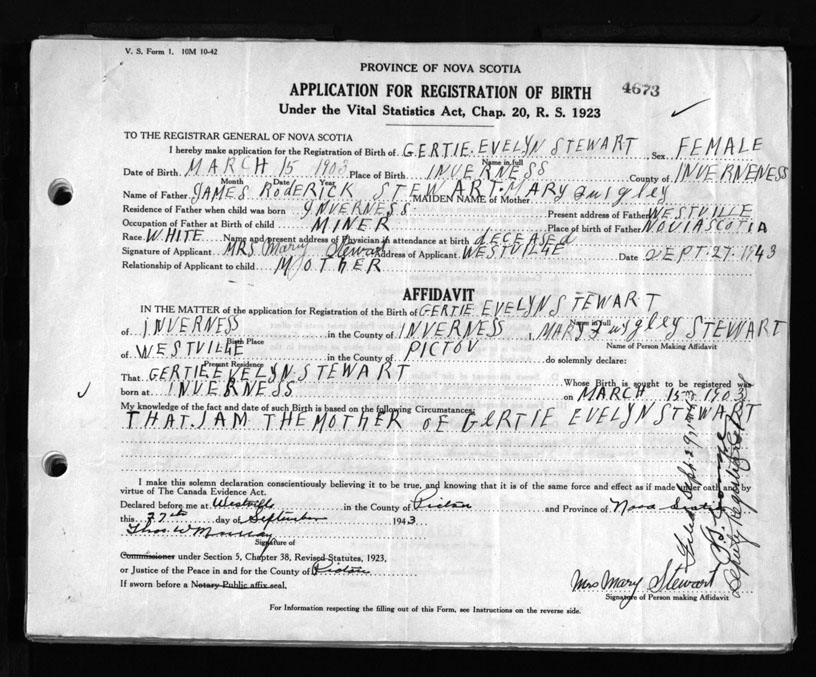 V. S. Form 1. 10M 10-42
PROVINCE OF NOVA SCOTIA
APPLICATION FOR REGISTRATION OF BIRTH 4673
Under the Vital Statistics Act, Chap. 20, R. S. 1923
TO THE REGISTRAR GENERAL OF NOVA SCOTIA
I hereby make application for the Registration of Birth of GERTIE EVELYN STEWART Sex FEMALE
Name in full
Date of Birth MARCH 15 1903 Place of Birth INVERNESS County of INVERNENESS
Month Date Year
Name of Father JAMES RODERICK STEWART MAIDEN NAME of Mother MARY Quigley
Residence of Father when child was born INVERNESS Present address of Father WESTVILLE
Occupation of Father at Birth of child MINER Place of birth of Father NOVIASCOTIA
Race WHITE Name and present address of Physician in attendance at birth deceased
Signature of Applicant MRS Mary Stewart Address of Applicant WESTVILLE Date SEPT. 27. 1943
Relationship of Applicant to child MOTHER
AFFIDAVIT
IN THE MATTER of the application for Registration of the Birth of GERTIE EVELYN STEWART
Name in full
of INVERNESS in the County of INVERNESS, MARY Quigley STEWART
Birth Place Name of Person Making Affidavit
of WESTVILLE in the County of PICTOU do solemnly declare:
Present Residence
That GERTIE EVELYN STEWART Whose Birth is sought to be registered was
born at INVERNESS on MARCH 15 1903
My knowledge of the fact and date of such Birth is based on the following Circumstances:
THAT I AM THE MOTHER OF GERTIE EVELYN STEWART
I make this solemn declaration conscientiously believing it to be true, and knowing that it is of the same force and effect as if made under oath and by
virtue of The Canada Evidence Act.
Declared before me at Westville in the County of Pictou and Province of Nova Scotia
this 27th day of September 1943
Thos. W Murray
Signature of
Commissioner under Section 5, Chapter 38, Revised Statutes, 1923,
or Justice of the Peace in and for the County of Pictou
If sworn before a Notary Public affix seal.
Mrs Mary Stewart
Signature of Person making Affidavit
For Information respecting the filling out of this Form, see Instructions on the reverse side.
Filed Sept 29, 1943
Deputy Registrar General